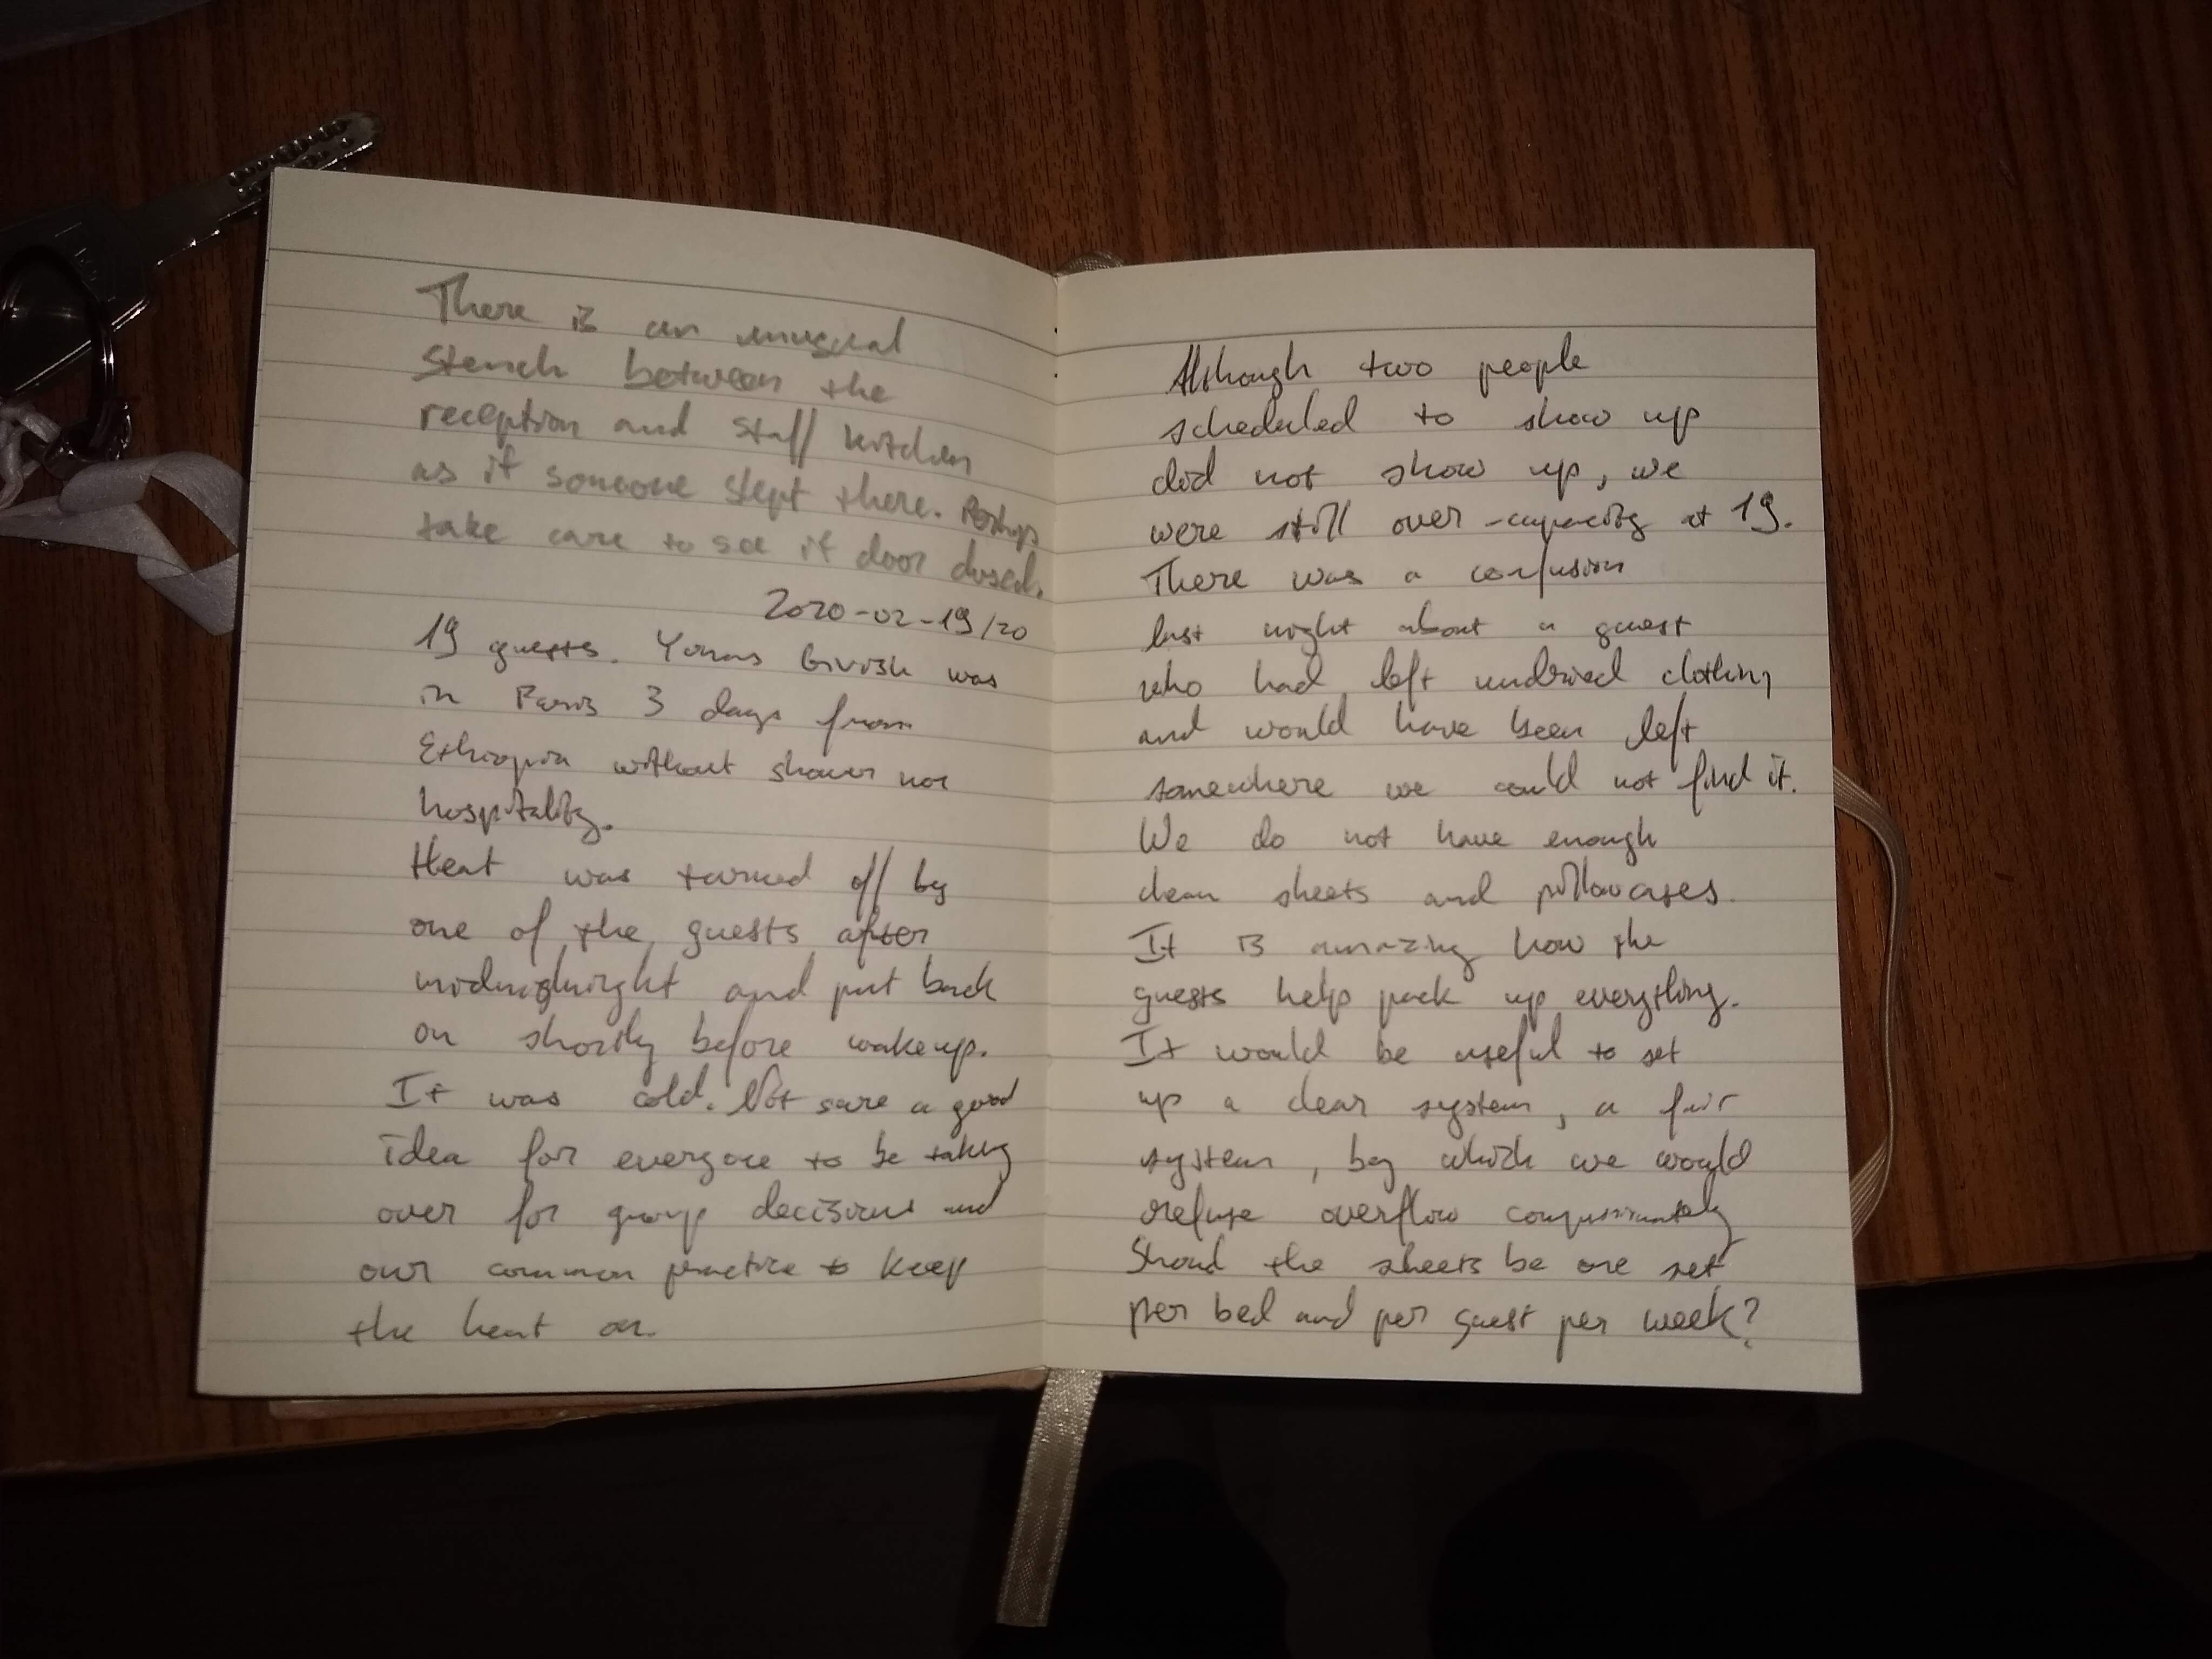 There is an unusual
stench between the
reception and staff kitchen
as if someone slept there. Perhaps
take care to see if door closed.
2020-02-19/20
19 guests. Yonas was
in Paris 3 days from
Ethiopia without shower nor
hospitality.
Heat was turned off by
one of the guests after
and put back
on shortly before wakeup.
It was cold. Not sure a good
idea for everyone to be taking
over for group decisions and
our common practice to keep
the heat on.
Although two people
scheduled to show up
did not show up, we
were still over-capacity at 19.
There was a confusion
last night about a guest
who had left undried clothing
and would have been left
somewhere we could not find it.
We do not have enough
clean sheets and pillowcases.
It is amazing how the
guests help pack up everything.
It would be useful to set
up a clear system, a fair
system, by which we would
refuse overflow compassionately
Shoud the sheets be one set
per bed and per guest per week?